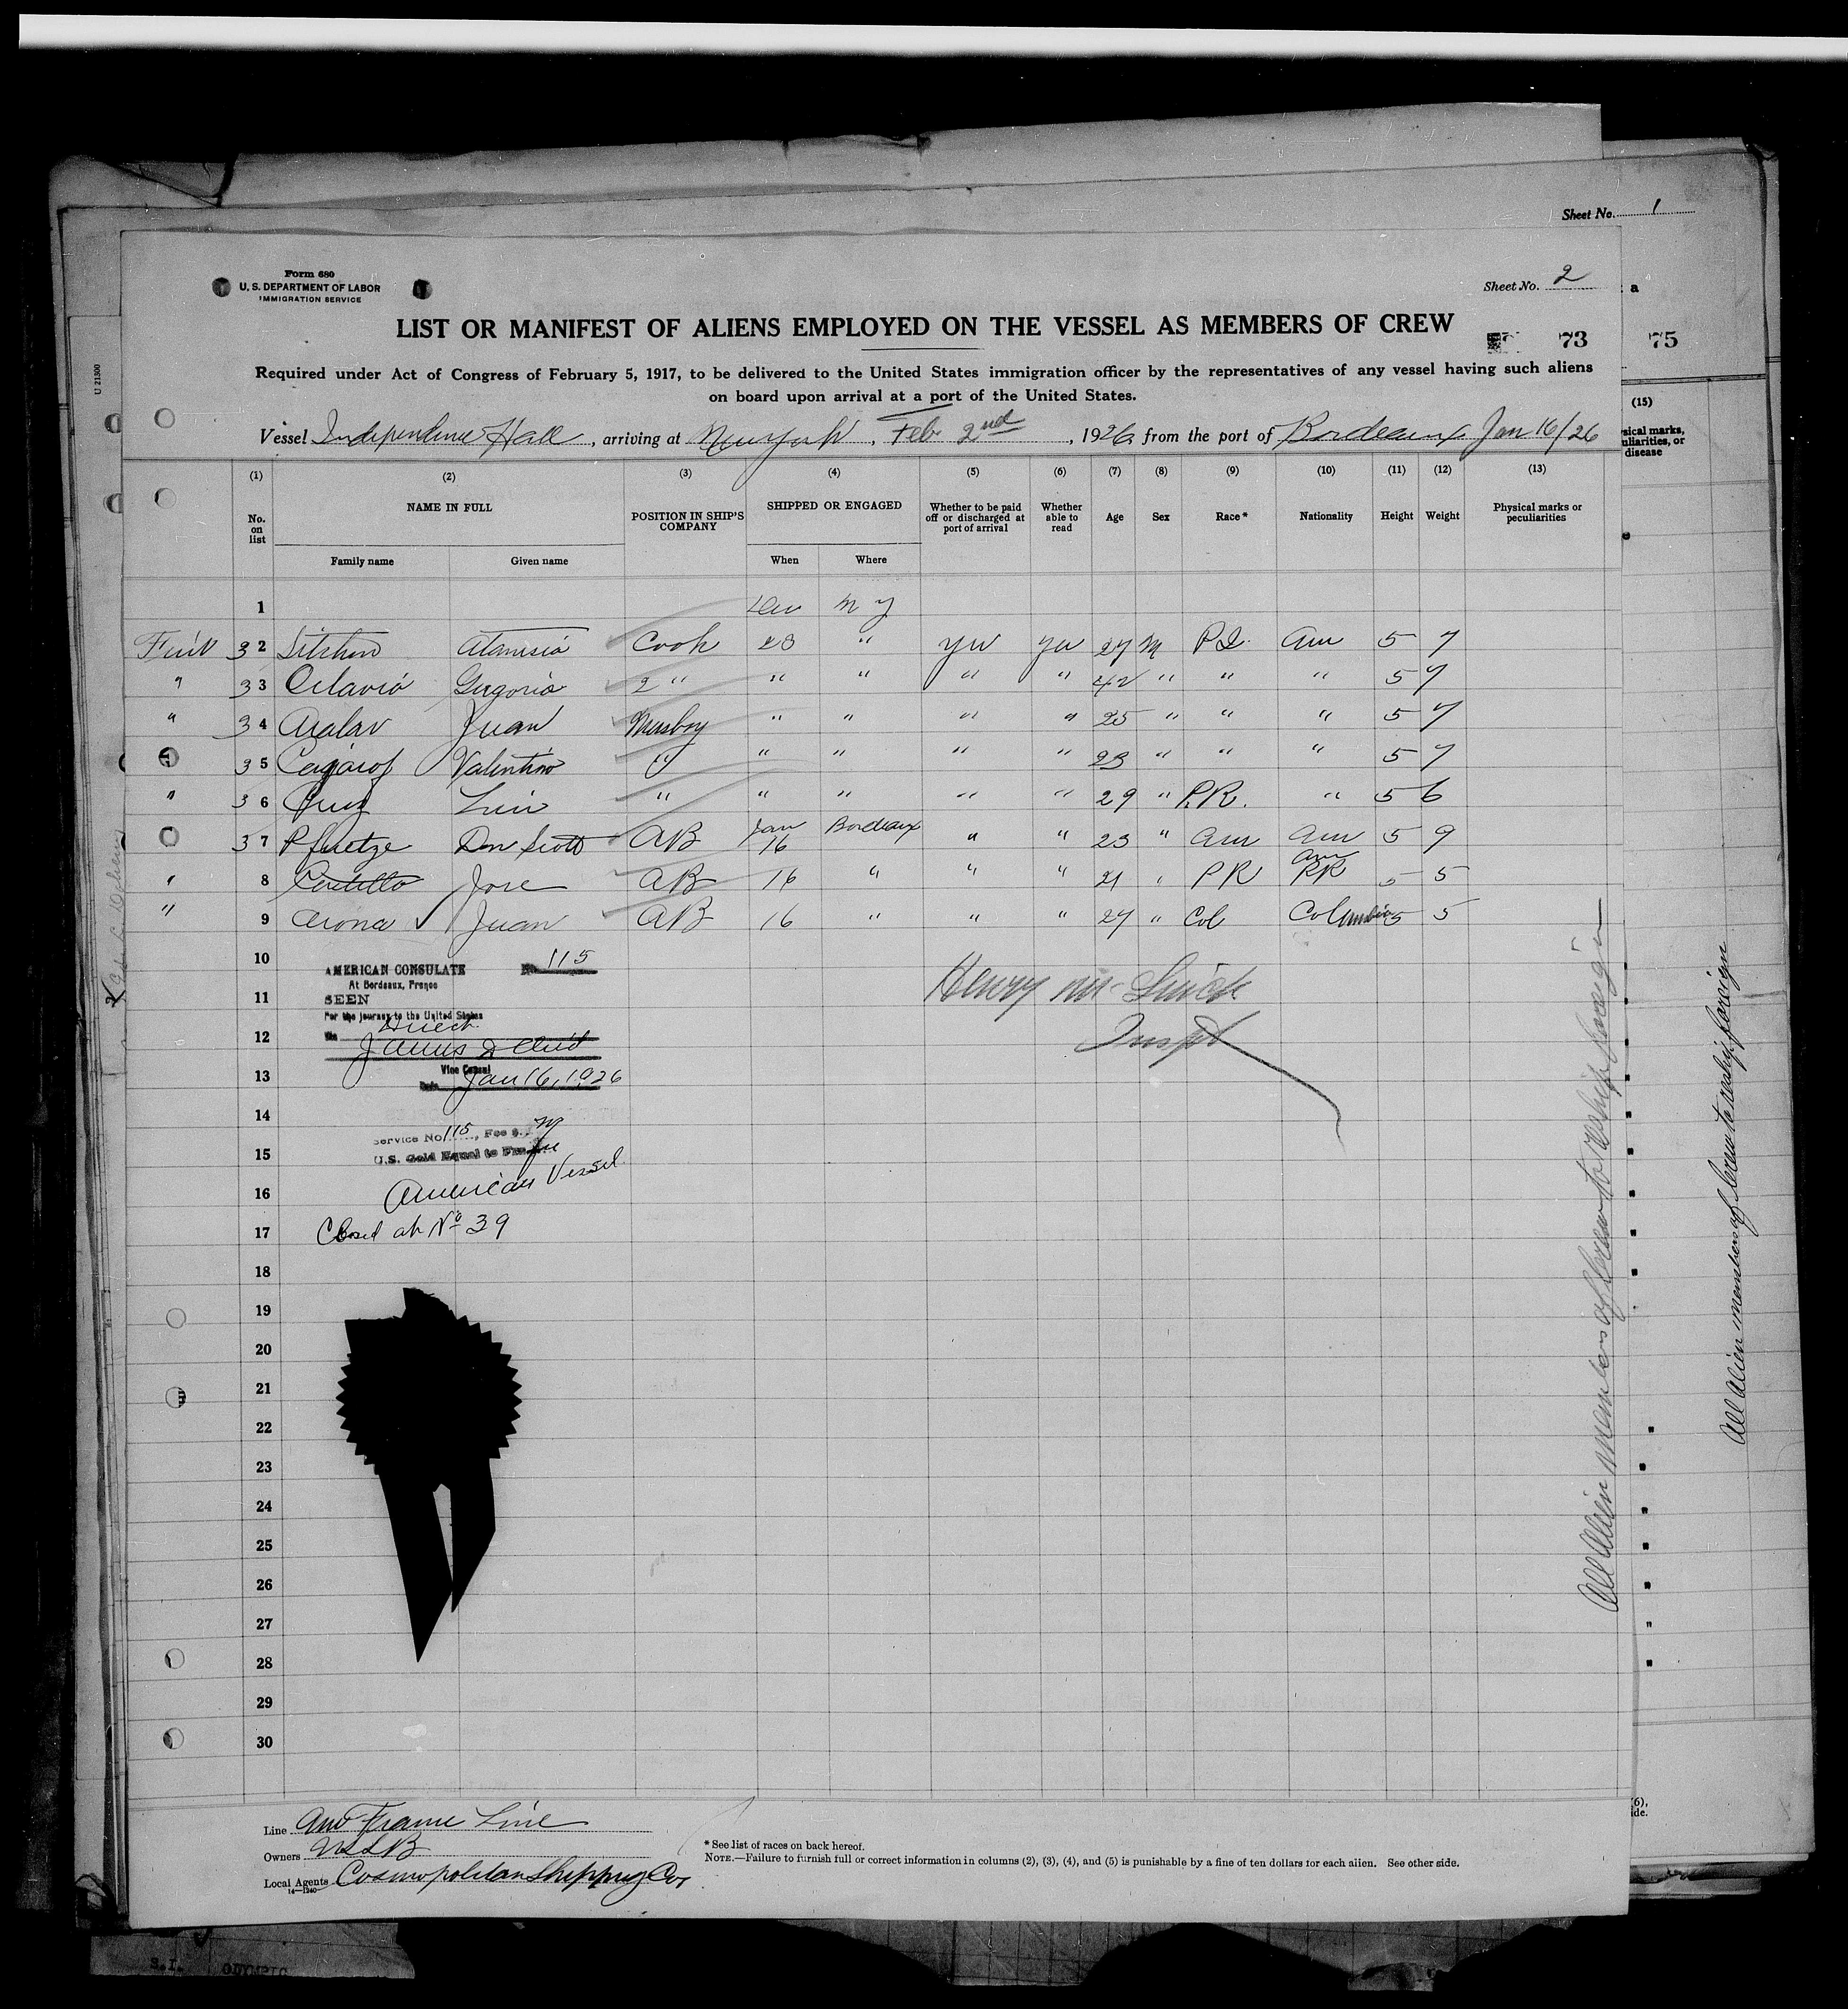 Sheet No. 1
Form 680
U. S. DEPARTMENT OF LABOR
IMMIGRATION SERVICE
Sheet No. 2
a
LIST OR MANIFEST OF ALIENS EMPLOYED ON THE VESSEL AS MEMBERS OF CREW
73 75
Required under Act of Congress of February 5, 1917, to be delivered to the United States immigration officer by the representatives of any vessel having such aliens
on board upon arrival at a port of the United States.
Vessel Independence Hall, arriving at New York, Feb 2nd, 1926 from the port of Bordeaux Jan 16/26
U 21300
(15)
sical marks,
uliarities, or
disease
(1) (2) (3) (4) (5) (6) (7) (8) (9) (10) (11) (12) (13)
No. on list NAME IN FULL POSITION IN SHIP'S COMPANY SHIPPED OR ENGAGED Whether to be paid off or discharged at port of arrival Whether able to read Age Sex Race* Nationality Height Weight Physical marks or peculiarities
Family name Given name When Where
1 N Y
32 Cook 23 " Yes Yes 27 M P.I. Am 5 7
" 33 Octavio Gregorio 2 " " " " " 42 " " " 5 7
" 34 Juan Messboy " " " " 25 " " " 5 7
35 Valentino " " " " " 23 " " " 5 7
" 36 Cruz Luis " " " " " 29 " P.R. " 5 6
37 Pfuetze Don Scott AB Jan 16 Bordeaux " " 23 " Am Am 5 9
" 8 Castillo Jose AB 16 " " " 21 " PR Am PR 5 5
" 9 Arona Juan AB 16 " " " 27 " Col Columbia 5 5
10
AMERICAN CONSULATE No. 115
At Bordeaux, France
11
SEEN
For the journey to the United States
Direct
12
Vice Consul
13
Date Jan 16, 1926
Henry
Inspt
14
Service No. 115, Fee $
15
U.S. Gold Equal to Frs
16
American Vessel
17
Closed at No 39
18
19
20
21
22
23
24
25
26
27
28
29
30
All Alien members of Crew to reship foreign
All Alien members of Crew to reship foreign
Line Am France Line
Owners USSB
Local Agents Cosmopolitan Shipping Co,
14—1240
* See list of races on back hereof.
NOTE.—Failure to furnish full or correct information in columns (2), (3), (4), and (5) is punishable by a fine of ten dollars for each alien. See other side.
(6),
ide.
S.I. OLYMPIC